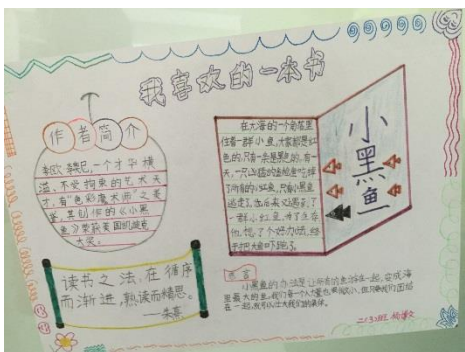 我喜欢的一本书
作者简介
李欧·李奥尼,一个才华横
溢、不受拘束的艺术天
才,有"色彩魔术师"之美
誉,其创作的《小黑
鱼》荣获美国凯迪克
大奖。
在大海的一个角落里
住着一群小鱼,大家都是红
色的,只有一条是黑色的。有一
天,一只凶猛的金枪鱼吃掉
了所有的小红鱼,只有小黑鱼
逃走了。后来
一群小红鱼,为了生存
他想了个好办法,终
于把大鱼吓跑了。
小黑鱼
读书之法,在循序
而渐进,熟读而精思。
——朱熹
小黑鱼的办法是让所有的鱼游在一起,变成海
里最大的鱼。我们每一个人力量也很小,但只要我们团结
在一起,就可以
二(3)班